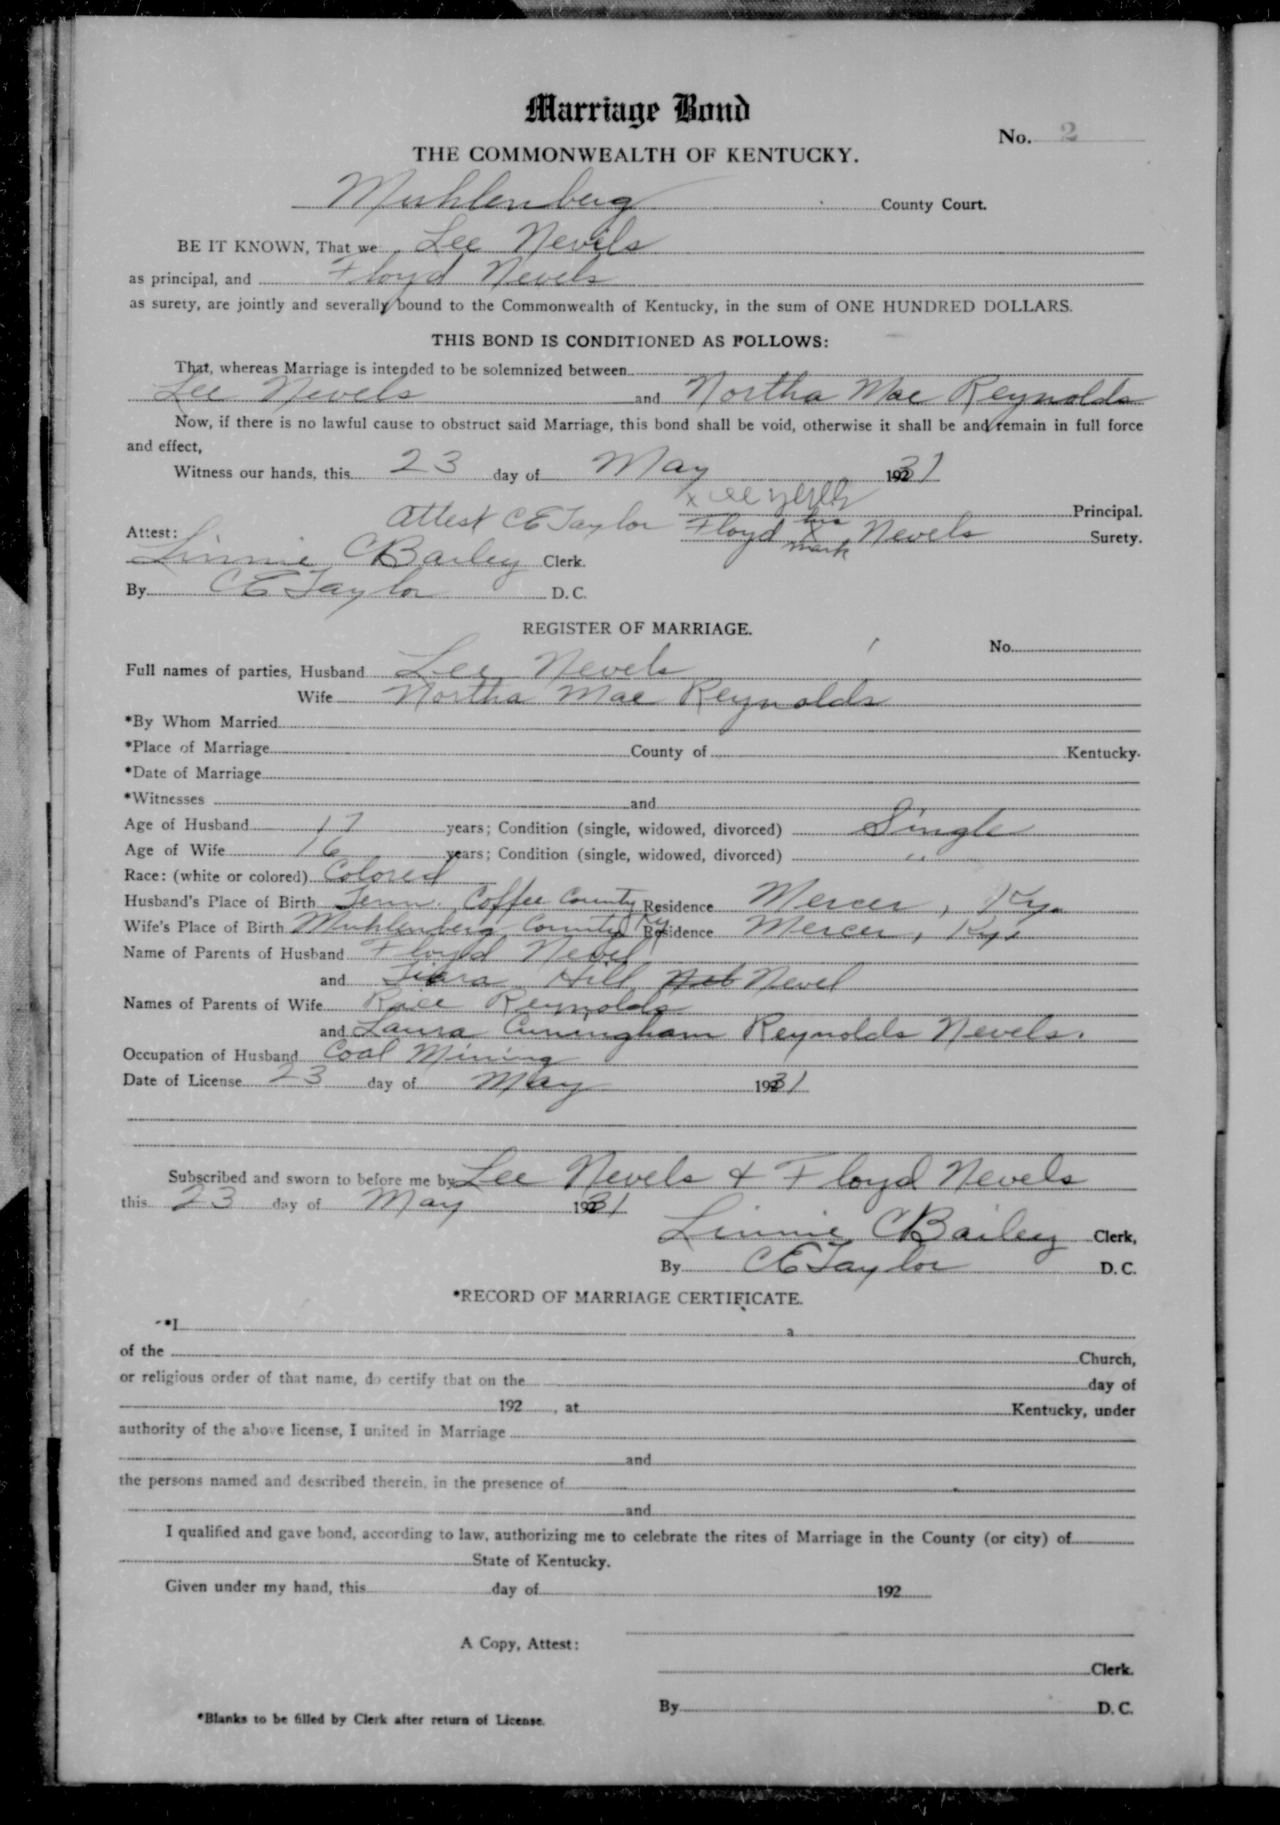 Marriage Bond
No. 2
THE COMMONWEALTH OF KENTUCKY.
Muhlenberg County Court.
BE IT KNOWN, That we Lee Nevels
as principal, and Floyd Nevels
as surety, are jointly and severally bound to the Commonwealth of Kentucky, in the sum of ONE HUNDRED DOLLARS.
THIS BOND IS CONDITIONED AS FOLLOWS:
That, whereas Marriage is intended to be solemnized between
Lee Nevels and Northa Mae Reynolds
Now, if there is no lawful cause to obstruct said Marriage, this bond shall be void, otherwise it shall be and remain in full force
and effect,
Witness our hands, this 23 day of May 1931
x Lee Principal.
Attest C E Taylor Floyd his x mark Nevels Surety.
Attest:
Linnie C Bailey Clerk.
By C E Taylor D. C.
REGISTER OF MARRIAGE.
No.
Full names of parties, Husband Lee Nevels
Wife Northa Mae Reynolds
*By Whom Married
*Place of Marriage County of Kentucky.
*Date of Marriage
*Witnesses and
Age of Husband 17 years; Condition (single, widowed, divorced) Single
Age of Wife 16 years; Condition (single, widowed, divorced) "
Race: (white or colored) Colored
Husband's Place of Birth Tenn. Coffee County Residence Mercer, Ky.
Wife's Place of Birth Muhlenberg County Ky Residence Mercer, Ky.
Name of Parents of Husband Floyd Nevel
and Hill Nevel
Names of Parents of Wife Race Reynolds
and Laura Cuningham Reynolds Nevels.
Occupation of Husband Coal Mining
Date of License 23 day of May 1931
Subscribed and sworn to before me by Lee Nevels & Floyd Nevels
this 23 day of May 1931
Linnie C Bailey Clerk,
By C E Taylor D. C.
*RECORD OF MARRIAGE CERTIFICATE.
*I a
of the Church,
or religious order of that name, do certify that on the day of
192 , at Kentucky, under
authority of the above license, I united in Marriage
and
the persons named and described therein, in the presence of
and
I qualified and gave bond, according to law, authorizing me to celebrate the rites of Marriage in the County (or city) of
State of Kentucky.
Given under my hand, this day of 192
A Copy, Attest:
Clerk.
By D. C.
*Blanks to be filled by Clerk after return of License.